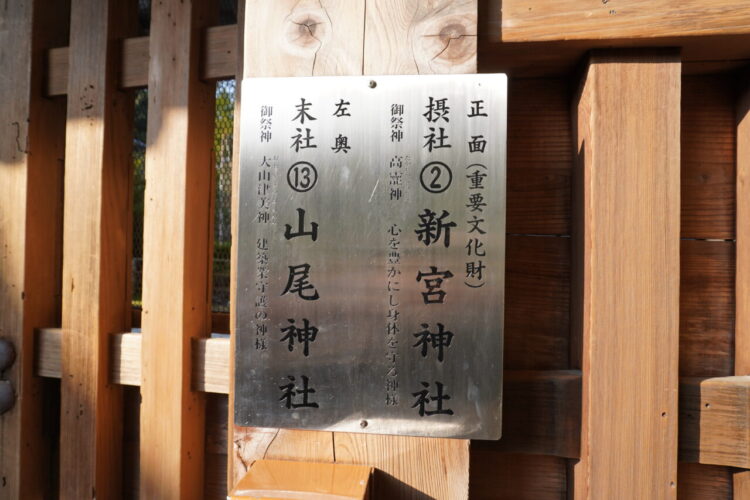 正面(重要文化財)
摂社②新宮神社
御祭神 高龗神 心を豊かにし身体を守る神様
左奥
末社⑬山尾神社
御祭神 大山津美神 建築業守護の神様